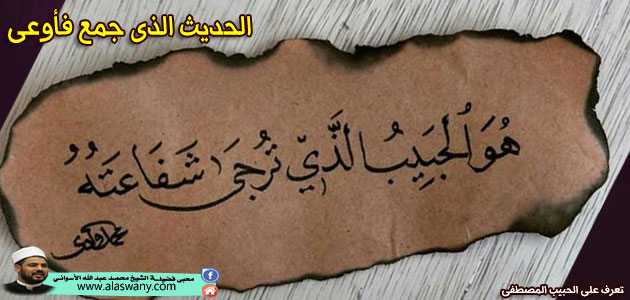 الحديث الذى جمع فأوعى
هُوَ الْحَبِيبُ الَّذِي تُرْجَى شَفَاعَتُهُ
محبى فضيلة الشيخ محمد عبد الله الأسوانى
www.alaswany.com
تعرف على الحبيب المصطفى